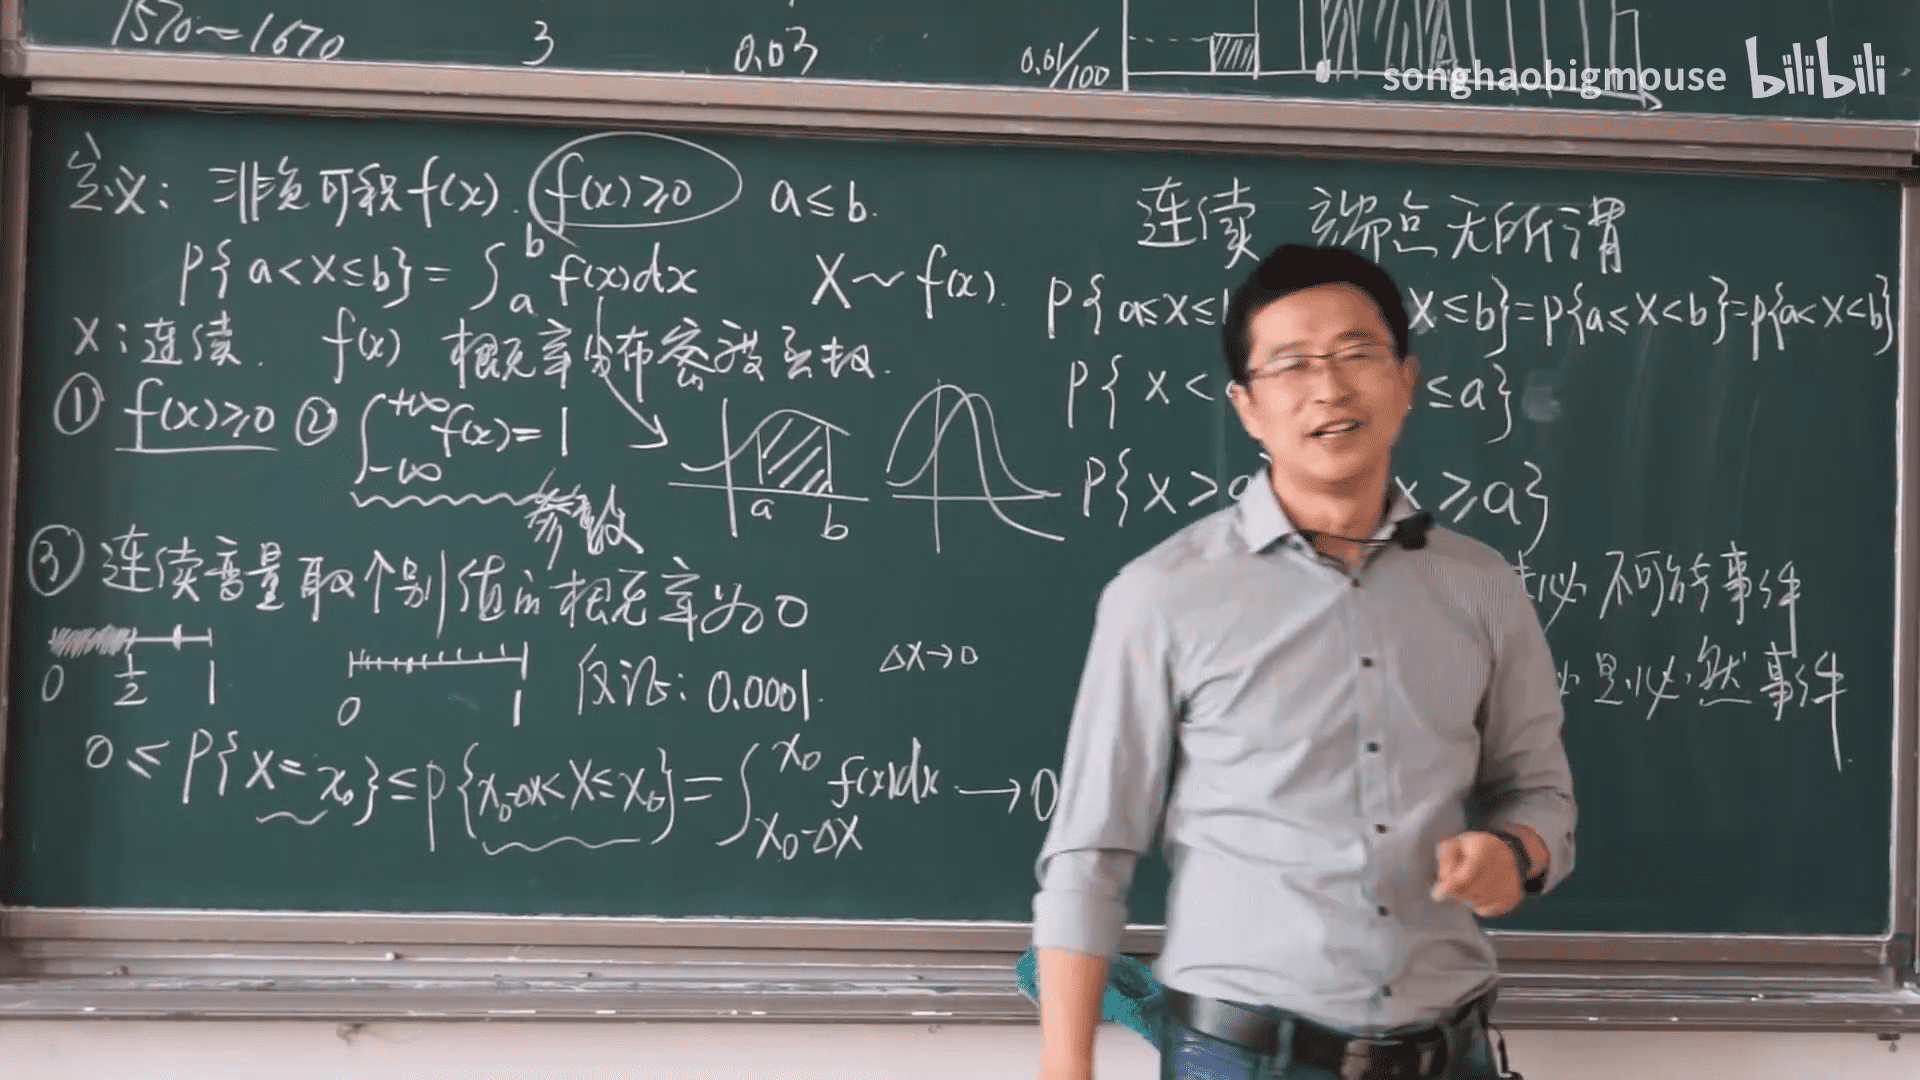 1570~1670 3 0.03 0.01/100
songhaobigmouse bilibili
定义: 非负可积f(x). f(x)≥0 a≤b.
P{a<X≤b}=∫_a^b f(x)dx X~f(x).
X:连续. f(x) 概率分布密度函数.
① f(x)≥0 ② ∫_{-∞}^{+∞} f(x)=1
a b
参数
③ 连续变量取个别值的概率为0
0 1/2 1
0 1 反证: 0.0001. Δx→0
0≤P{X=x₀}≤P{x₀-Δx<X≤x₀}=∫_{x₀-Δx}^{x₀} f(x)dx→0
连续 端点无所谓
P{a≤X≤ X≤b}=P{a≤X<b}=P{a<X<b}
P{X< ≤a}
P{X>a X≥a}
未必不可能事件
必是必然事件